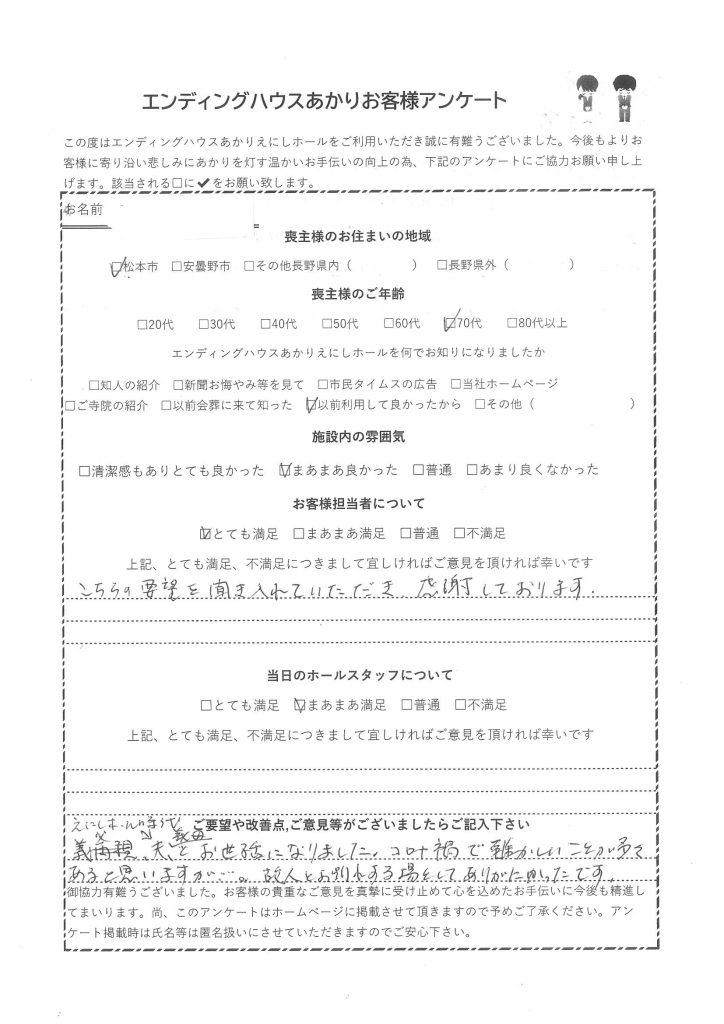 エンディングハウスあかりお客様アンケート
この度はエンディングハウスあかりえにしホールをご利用いただき誠に有難うございました。今後もよりお
客様に寄り沿い悲しみにあかりを灯す温かいお手伝いの向上の為、下記のアンケートにご協力お願い申し上
げます。該当される□に✔をお願い致します。
お名前
喪主様のお住まいの地域
☑松本市 □安曇野市 □その他長野県内（ ） □長野県外（ ）
喪主様のご年齢
□20代 □30代 □40代 □50代 □60代 ☑70代 □80代以上
エンディングハウスあかりえにしホールを何でお知りになりましたか
□知人の紹介 □新聞お悔やみ等を見て □市民タイムスの広告 □当社ホームページ
□ご寺院の紹介 □以前会葬に来て知った ☑以前利用して良かったから □その他（ ）
施設内の雰囲気
□清潔感もありとても良かった ☑まあまあ良かった □普通 □あまり良くなかった
お客様担当者について
☑とても満足 □まあまあ満足 □普通 □不満足
上記、とても満足、不満足につきまして宜しければご意見を頂ければ幸いです
こちらの要望を聞き入れていただき、感謝しております。
当日のホールスタッフについて
□とても満足 ☑まあまあ満足 □普通 □不満足
上記、とても満足、不満足につきまして宜しければご意見を頂ければ幸いです
えにしホールの
ご要望や改善点,ご意見等がございましたらご記入下さい
父 義母
義 、夫とお世話になりました。コロナ禍で難かしいことが多々
あると思いますが…。故人とお別れする場としてありがたかったです。
御協力有難うございました。お客様の貴重なご意見を真摯に受け止めて心を込めたお手伝いに今後も精進し
てまいります。尚、このアンケートはホームページに掲載させて頂きますので予めご了承ください。アン
ケート掲載時は氏名等は匿名扱いにさせていただきますのでご安心下さい。